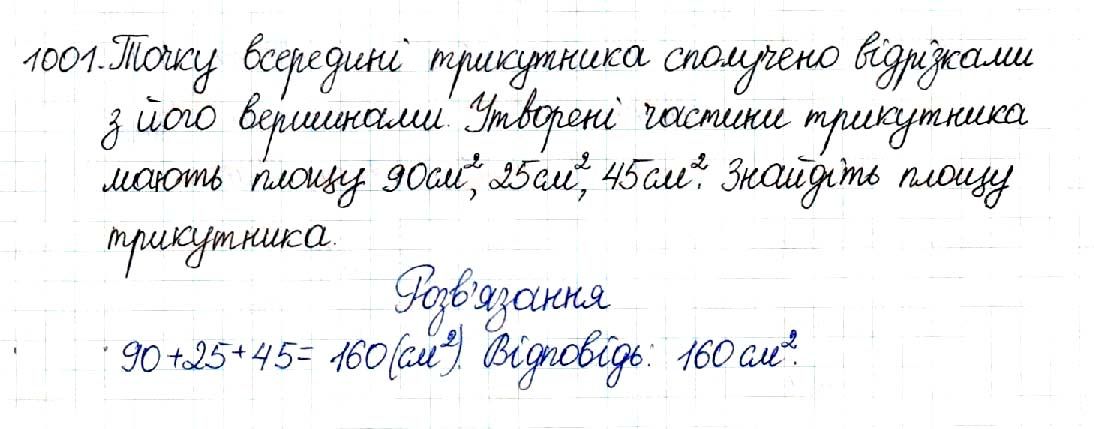 1001. Точку всередині трикутника сполучено відрізками
з його вершинами. Утворені частини трикутника
мають площу 90см², 25см², 45см². Знайдіть площу
трикутника.
Розв'язання
90+25+45= 160(см²). Відповідь: 160см².